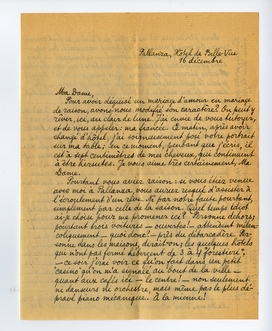 Pallanza, Hôtel de Belle-Vue
16 décembre
Ma Dame,
Pour avoir déguisé un mariage d'amour en mariage
de raison, avons-nous modifié son caractère? On peut y
rêver, ici, au clair de lune. J'ai envie de vous tutoyer,
et de vous appeler: ma chérie. Ce matin, après avoir
changé d'hôtel, j'ai soigneusement posé votre portrait
sur ma table; en ce moment, pendant que j'écris, il
est à sept centimètres de mes cheveux, qui continuent
à être hirsutes. Je vous aime très certainement, Ma
Dame.
Pourtant vous aviez raison: si vous étiez venue
avec moi à Pallanza, vous auriez risqué d'assister à
l'écroulement d'un rêve. Et pas notre faute, pourtant,
simplement par celle de la saison. Quel temps
ai-je choisi pour me promener ici? Personne dehors;
pourtant trois voitures — ouvertes! — attendent mélan-
coliquement — quoi donc? Pas au débarcadère. Per-
sonne dans les maisons, dirait-on; les quelques hôtels
qui n'ont pas fermé hébergent de 3 à 4 "forestieri",
— ce soir j'irai voir ce qu'on fait dans un petit
casino qu'on m'a signalé au bout de la ville —
quant aux cafés — le centre! — non seulement
ni chanteurs ni orchestre, mais même pas le plus dé-
pravé piano mécanique. À la minute!